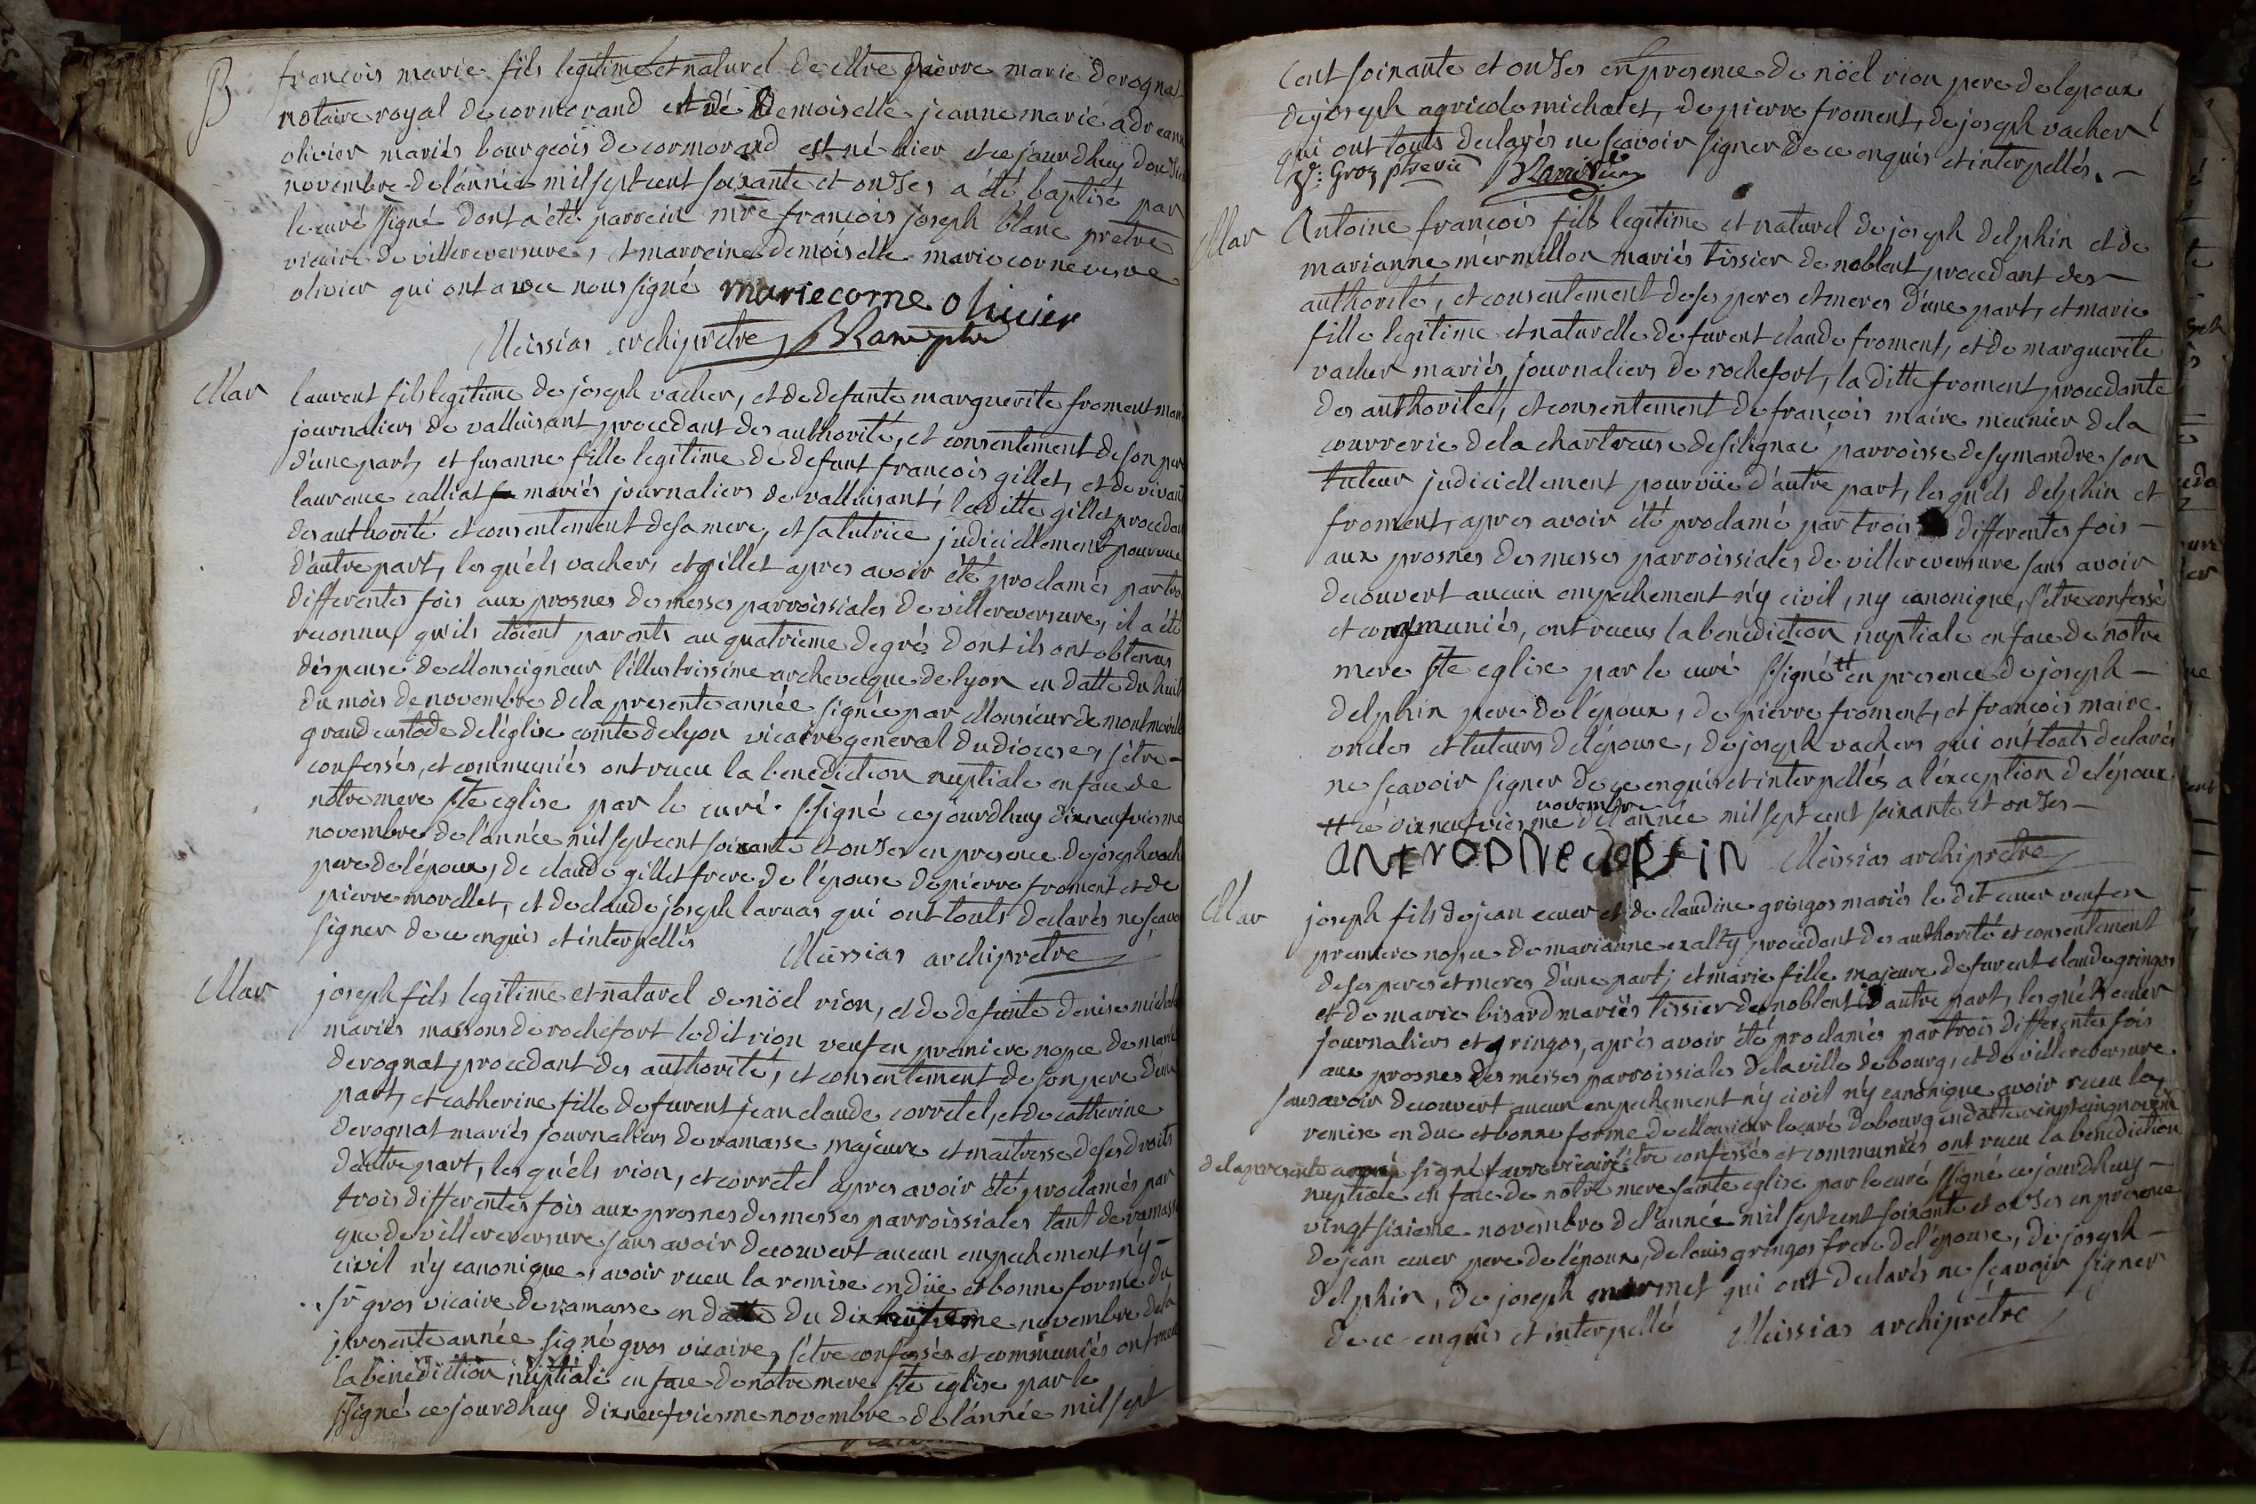 B françois marie fils legitime et naturel de Mtre pierre marie derognat
notaire royal de cormorand et de Demoiselle jeanne marie adreanne
olivier mariés bourgeois de cormorand est né hier et ce jourdhuy douzie
novembre de l'année mil sept cent soixante et onzes a été baptisé par
le curé ssigné dont a été parrein mre françois joseph blanc pretre
vicaire de villereversure, et marreine demoiselle marie corneverve
olivier qui ont avec nous signé marie corne olivier
Meissias archipretre
Mar laurent fils legitime de joseph vacher, et de defunte marguerite froment mari
journaliers de valluisant procedant des authorité, et consentement de son pere
d'une part, et susanne fille legitime de defunt françois gillet, et de vivant
laurence calliat mariés journaliers de valluisant, laditte gillet procedan
des authorité et consentement de sa mere, et sa tutrice judiciellement pourvue
d'autre part, les quéls vacher, et gillet apres avoir été proclamés par troi
differentes fois aux prosnes des messes parroissiales de villereversure, il a été
reconnu, qu'ils étoient parents au quatrieme degré dont ils ont obtenus
dispense de Monseigneur l'illustrissime archeveque de lyon en datte du huit
du mois de novembre de la presente année signée par Monsieur de montmorill
grand custode de l'église comte de lyon vicaire general du diocese, s'être
confessés, et communiés ont rucu la benediction nuptiale en face de
notre mere ste eglise par le curé ssigné ce jourdhuy dixneufviesme
novembre de l'année mil sept cent soixante et onzes en presence de joseph vach
pere de l'époux, de claude gillet frere de l'épouse de pierre froment et de
pierre morellet, et de claude joseph larnas qui ont touts declarés ne sçavo
signer de ce enquis et interpellés Meissias archipretre
Mar joseph fils legitime et naturel de nöel rion, et de defunte denise michale
mariés massons de rochefort ledit rion veuf en premiere nopce de marie
derognat procedant des authorité, et consentement de son pere d'une
part, et catherine fille de furent jean claude corretel, et de catherine
derognat mariés journaliers de ramasse majeure et maitresse de ses droits
d'autre part, les quéls rion, et corretel apres avoir été proclamés par
trois differentes fois aux prosnes des messes parroissiales tant de ramass
que de villereversure sans avoir decouvert aucun empechement n'y
civil n'y canonique, avoir rucu la remise en düe et bonne forme du
sr gros vicaire de ramasse en datte du dix novembre de la
presente année signé gros vicaire, s'être confessés et communiés ont rucu
la benediction nuptiale en face de notre mere ste eglise par le
ssigné ce jourdhuy dixneufviesme novembre de l'année mil sept
cent soixante et onzes en presence de nöel rion pere de l'epoux
de joseph agricole michalet, de pierre froment, de joseph vacher
qui ont touts declarés ne sçavoir signer de ce enquis et interpellés.
Mar Antoine françois fils legitime et naturel de joseph delphin et de
marianne mermillon mariés tissier de noblent procedant des
authorité, et consentement de ses peres et meres d'une part, et marie
fille legitime et naturelle de furent claude froment, et de marguerite
vacher mariés, journaliers de rochefort, la ditte froment procedante
des authorité, et consentement de françois maire meunier de la
courrerie de la chartreuse de silignac, parroisse de symandre son
tuteur judiciellement pourvüe d'autre part, les quels delphin et
froment, apres avoir été proclamé par trois differentes fois
aux prosnes des messes parroissiales de villereversure sans avoir
decouvert aucun empechement n'y civil, ny canonique, s'etre confessé
et communiés, ont rucus la benediction nuptiale en face de notre
mere ste eglise par le curé ssigné # en presence de joseph
delphin pere de l'époux, de pierre froment, et françois maire
oncles et tuteurs de l'épouse, de joseph vachers qui ont touts declarés
ne sçavoir signer de ce enquis et interpellés a l'exception de l'époux
novembre
# ce dixneufviesme de l'année mil sept cent soixante et onzes
Meissias archipretre
Mar joseph fils de jean ecuer et de claudine gringos mariés le dit ecuer veuf en
premiere nopce de marianne exalty procedant des authorité et consentement
de ses peres et meres d'une part; et marie fille majeure de furent claude gringos
et de marie bisard mariés tissier de noblent d'autre part, les quéls ecuer
journaliers et gringos, aprés avoir été proclamés par trois differentes fois
aux prosnes des messes parroissiales de la ville de bourg, et de villereversure
sans avoir decouvert aucun empechement n'y civil n'y canonique avoir rucu la
remise en due et bonne forme de Monsieur le curé de bourg en datte vingtcinq novem
de la presente année signé favre vicaire s'être confessés et communiés ont rucu la benediction
nuptiale en face de notre mere sainte eglise par le curé ssigné ce jourdhuy
vingt sixieme novembre de l'année mil sept cent soixante et onzes en presence
de jean ecuer pere de l'époux, de louis gringos frere de l'épouse, de joseph
delphin, de joseph mermet qui ont declarés ne sçavoir signer
de ce enquis et interpellé Meissias archipretre